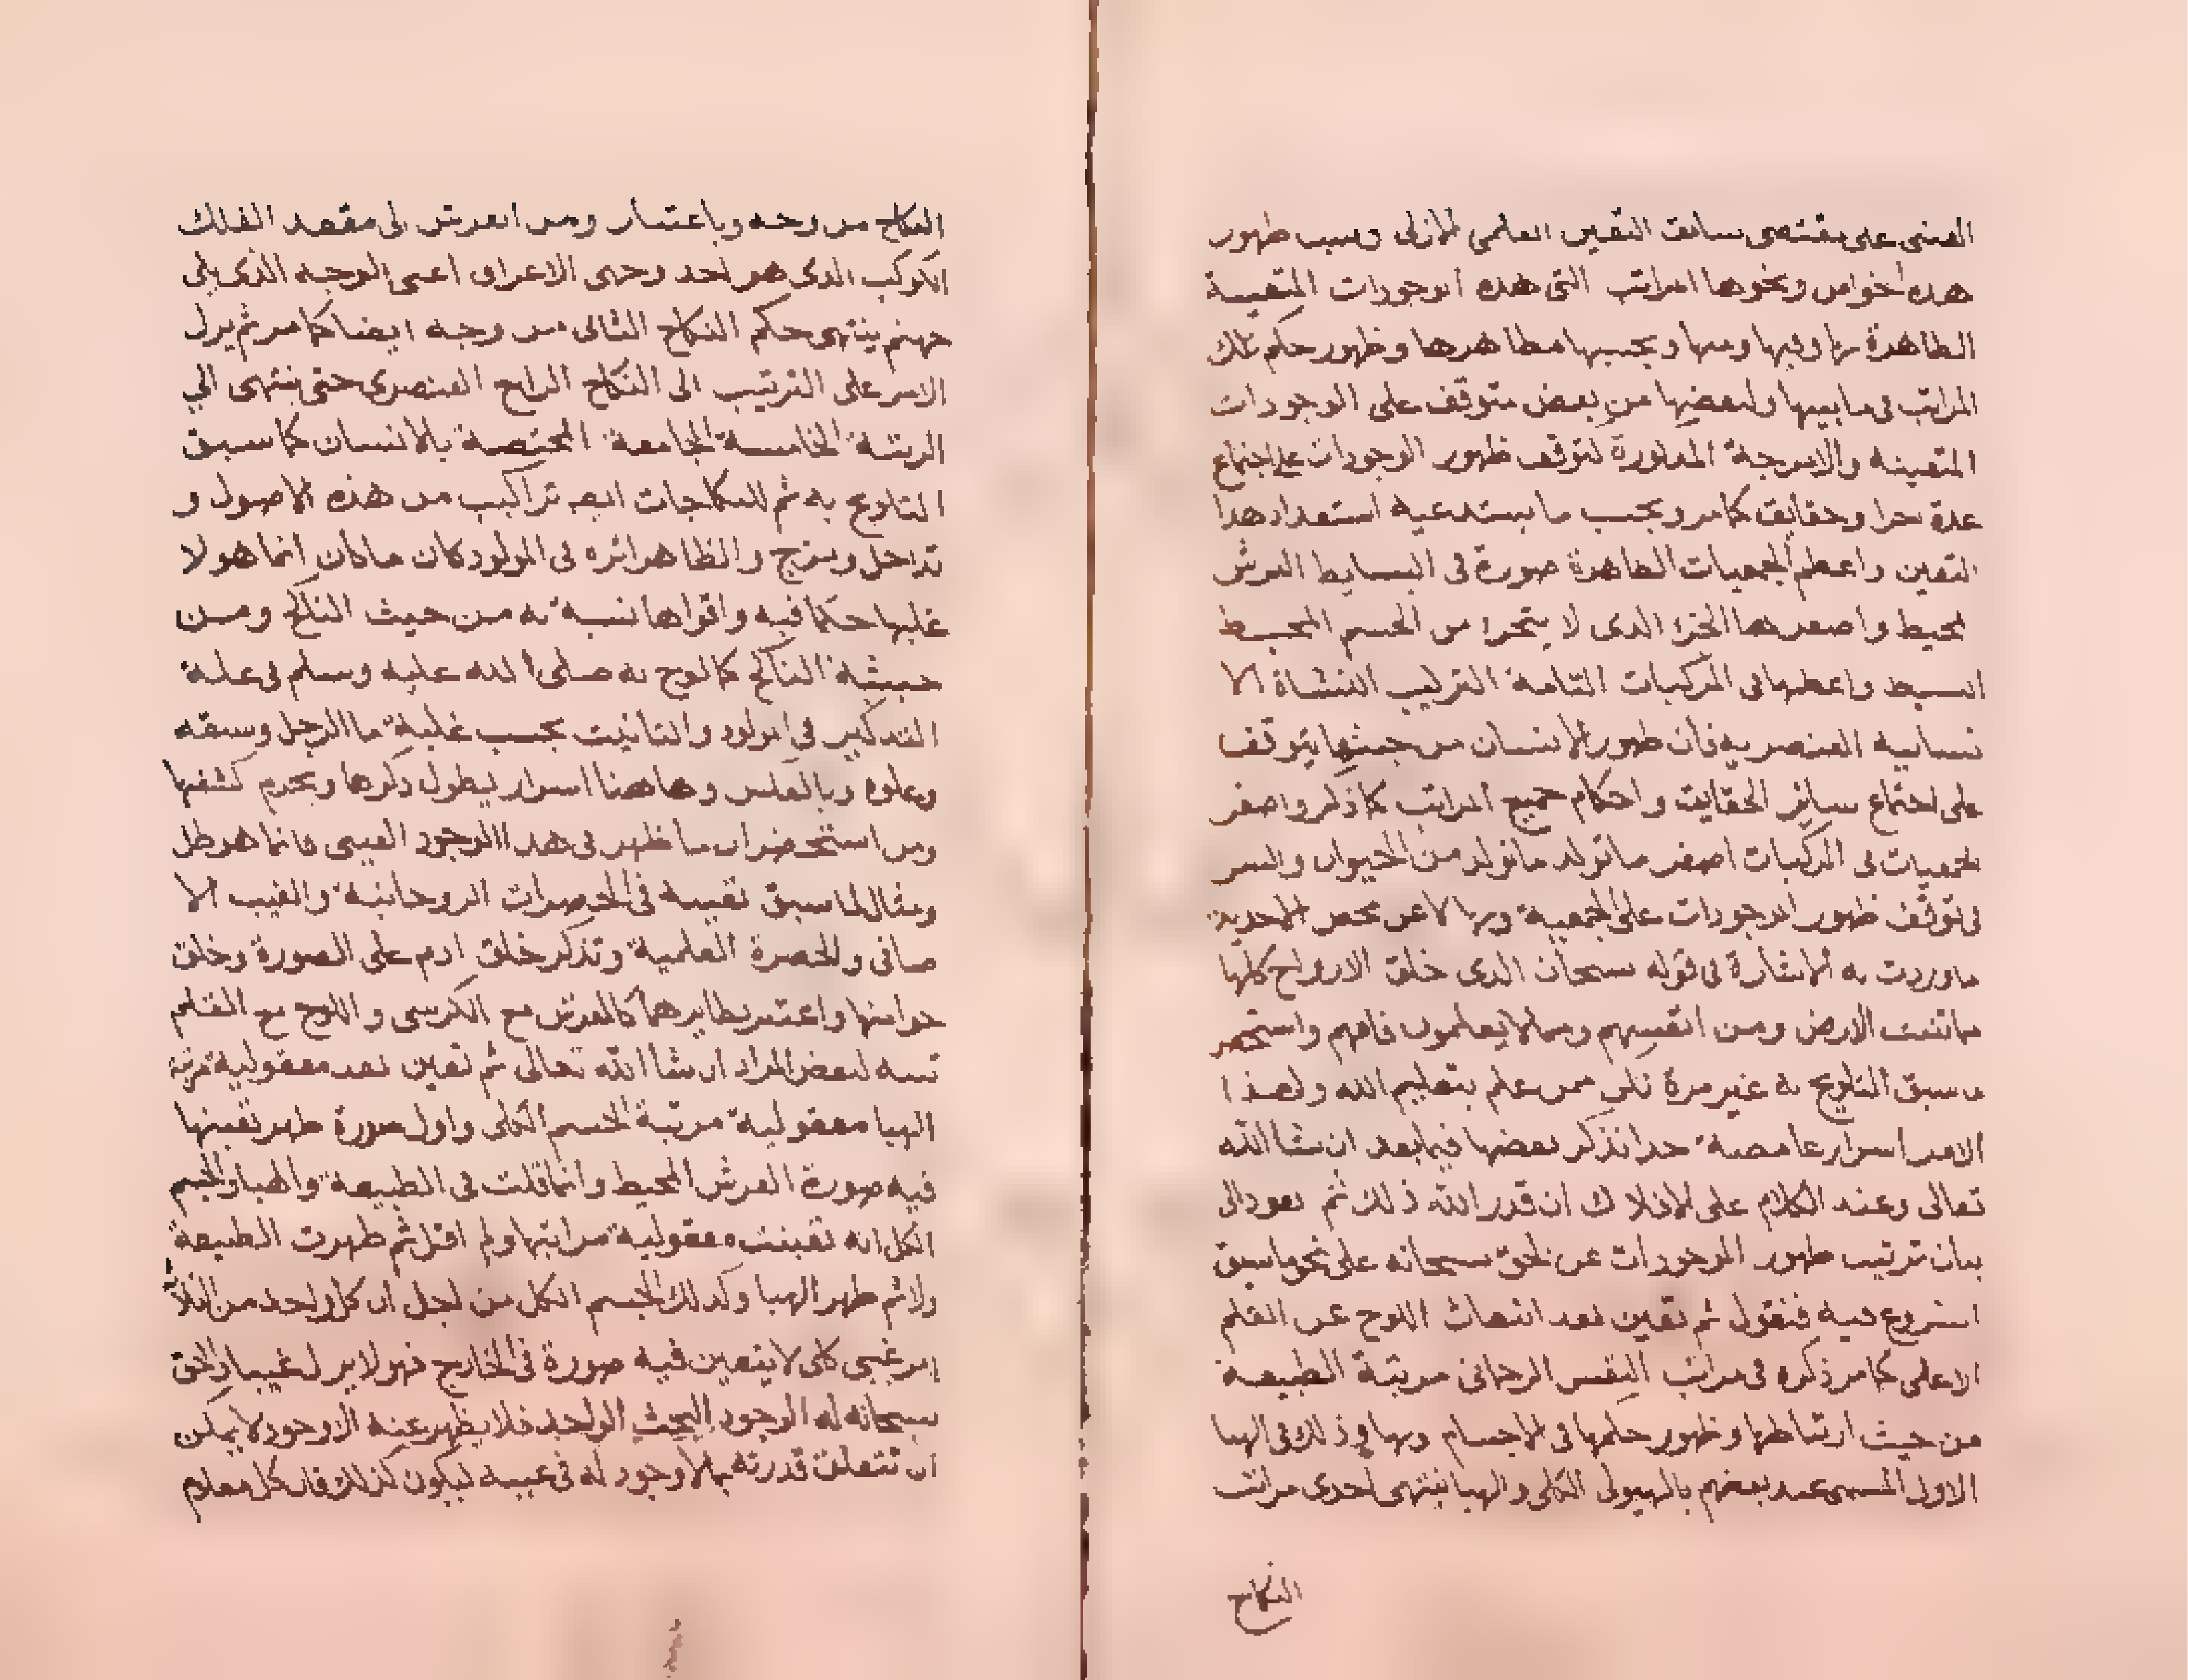 العيني على مقتضى سابق التعين العلمي الازلى وسبب ظهور
هذه الخواص ونحوها المراتب التى هذه الموجودات المتعينة
الظاهرة بها وفيها ومنها وبحسبها مظاهرها وظهور حكم تلك
المراتب فى ما بينها ولبعضها من بعض متوقف على الوجودات
المتعينه والامزجة المذكورة لتوقف ظهور الوجودات على اجتماع
عدة اجزا وحقايق كما مر وبحسب ما يستدعيه استعداد هذا
التعين واعظم الجمعيات الظاهرة صورة فى البسايط العرش
المحيط واصغرها الجزء الذى لا يتجزء من الجسم المحيط
البسيط واعظمها فى المركبات التامة التركيب النشاة الا
نسانيه العنصريه فان ظهور الانسان من حيثها يتوقف
على اجتماع ساير الحقايق واحكام جميع المراتب كما ذكر واصغر
الجمعيات فى المركبات اصغر ما تولد من الحيوان والسر
فى توقف ظهور الموجودات على الجمعية
ما وردت به الاشارة فى قوله سبحان الذى خلق الازواج كلها
مما تنبت الارض ومن انفسهم ومما لا يعلمون فافهم واستحضر
ما سبق التلويح به غير مرة تكن ممن علم بتعليم الله ولهذا
الامر اسرار غامضة جدا نذكر بعضها فيما بعد ان شا الله
تعالى وعند الكلام على الافلاك ان قدر الله ذلك ثم نعود الى
بيان ترتيب ظهور الموجودات عن الحق سبحانه على نحو ما سبق
الشروع فيه فنقول ثم تعين بعد انبعاث اللوح عن القلم
الاعلى كما مر ذكره فى مراتب النفس الرحمانى مرتبة الطبيعة
من حيث ارتباطها وظهور حكمها فى الاجسام وبها وذلك فى الهبا
الاول المسمى عند بعضهم بالهيولى الكلى والهبا ينتهى احدى مراتب
النكاح
النكاح من وجه وباعتبار ومن العرش الى مقعد الفلك
الكوكب الذى هو احد وجهى الاعراف اعنى الوجه الذى يلى
جهنم ينتهى حكم النكاح الثانى من وجه ايضا كما مر ثم ينزل
الامر على الترتيب الى النكاح الرابع العنصرى حتى ينتهى الي
الرتبة الخامسة الجامعة المختصة بالانسان كما سبق
التلويح به ثم للنكاحات الخمسة تراكيب من هذه الاصول و
تداخل ومزج والظاهر اثره فى المولود كان ما كان انما هو لا
غلبها حكما فيه واقواها نسبة به من حيث الناكح ومن
حيثية الناكح كما لوح به صلى الله عليه وسلم فى علة
التذكير فى المولود والتانيث بحسب غلبة ما الرجل وسبقه
وعلوه وبالعكس وهاهنا اسرار يطول ذكرها ويحرم كشفها
ومن استحضر ان ما ظهر فى هذا الوجود العينى فانما هو ظل
ومثال لما سبق تعينه فى الحضرات الروحانية والغيب الا
ضافى والحضرة العلمية وتذكر خلق ادم على الصورة وخلق
حوا منها واعتبر نظايرهما كالعرش مع الكرسى واللوح مع القلم
تنبه لبعض المراد ان شا الله تعالى ثم تعين بعد معقولية مرتبة
الهبا معقولية مرتبة الجسم الكلى واول صورة ظهر تعينها
فيه صورة العرش المحيط وانما قلت فى الطبيعة والهبا والجسم
الكل انه تعينت معقولية مراتبها ولم اقل ثم ظهرت الطبيعة
ولا ثم ظهر الهبا وكذلك الجسم الكل من اجل ان كل واحد من الثلاثة
امر غيبى كلى لا يتعين فيه صورة فى الخارج فهو لا يزل غيبا والحق
سبحانه له الوجود البحث الواحد فلا يظهر عنه الا وجود لا يمكن
ان تتعلق قدرته بما لا وجود له فى عينه ليكون كذلك فان كل معلوم